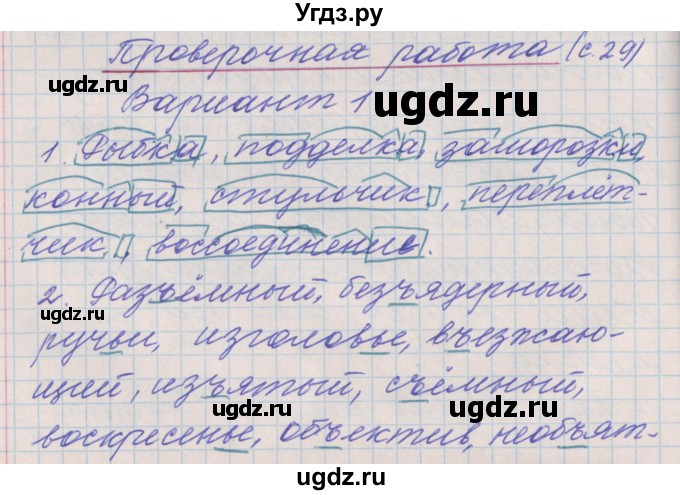 Угдз.ру
Проверочная работа (с.29)
ugdz.ru
Вариант 1
ugdz.ru
1. Рыбка, подделка, заморозки,
конный, стульчик, переплёт-
чик, воссоединение.
ugdz.ru
2. Разъёмный, безъядерный,
ugdz.ru
ручьи, изголовье, въезжаю-
щий, изъятый, съёмный,
ugdz.ru
ugdz.ru
воскресенье, объектив, необъят-
ugdz.ru